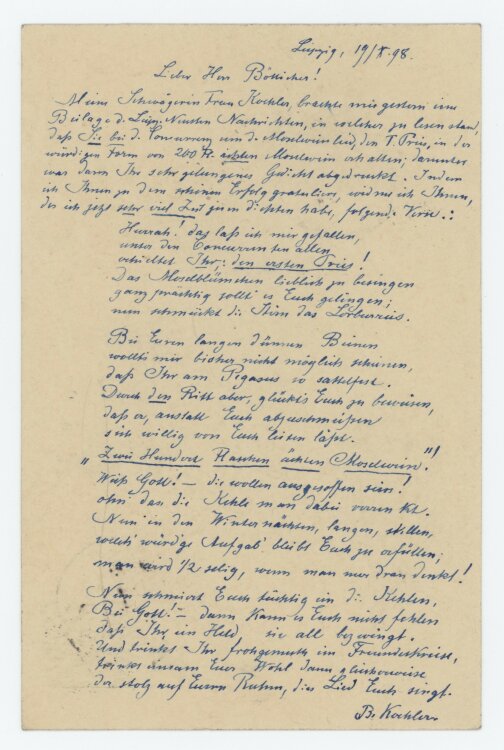 Leipzig, 19/X. 98.
Lieber Herr Bötticher!
Meine Schwägerin Frau Koehler, brachte mir gestern eine
Beilage d. Leipz. Neusten Nachrichten, in welcher zu lesen stand,
daß Sie bei d. Concurrenz um d. Moselweinlied, den I. Preis, in der
würdigen Form von 200 Fl. ächten Moselwein erhalten; darunter
war dann Ihr sehr gelungenes Gedicht abgedruckt. Indem
ich Ihnen zu dem schönen Erfolg gratuliere, widme ich Ihnen,
der ich jetzt sehr viel Zeit zum dichten habe, folgende Verse.:
Hurrah! das laß ich mir gefallen,
unter den Concurrenten allen
erhieltet Ihr: den ersten Preis!
Das Moselblümchen lieblich zu besingen
ganz prächtig sollt es Euch gelingen;
nun schmückt die Stirn das Lorbeerreis.
Bei Euren langen dünnen Beinen
wollt's mir bisher nicht möglich scheinen,
daß Ihr am Pegasus so sattelfest.
Durch den Ritt aber, glückt's Euch zu beweisen,
daß er, anstatt Euch abzuschmeißen
sich willig von Euch leiten läßt.
„Zwei Hundert Flaschen ächten Moselwein"!
Weiß Gott! – die wollen ausgesoffen sein!
ohn' das die Kehle man dabei verrenkt.
Nun in den Winternächten, langen, stillen,
welch' würdge Aufgab' bleibt Euch zu erfüllen;
man wird 1/2 selig, wenn man nur dran denkt!
Nun schmiert Euch tüchtig ein die Kehlen,
Bei Gott! – dann kann es Euch nicht fehlen
daß Ihr, ein Held sie all bezwingt.
Und trinkt Ihr frohgemuth im Freundeskreise,
trinkt einsam Euer Wohl dann glücklicherweise
der stolz auf Euren Ruhm, dies Lied Euch singt.
B. Koehler.